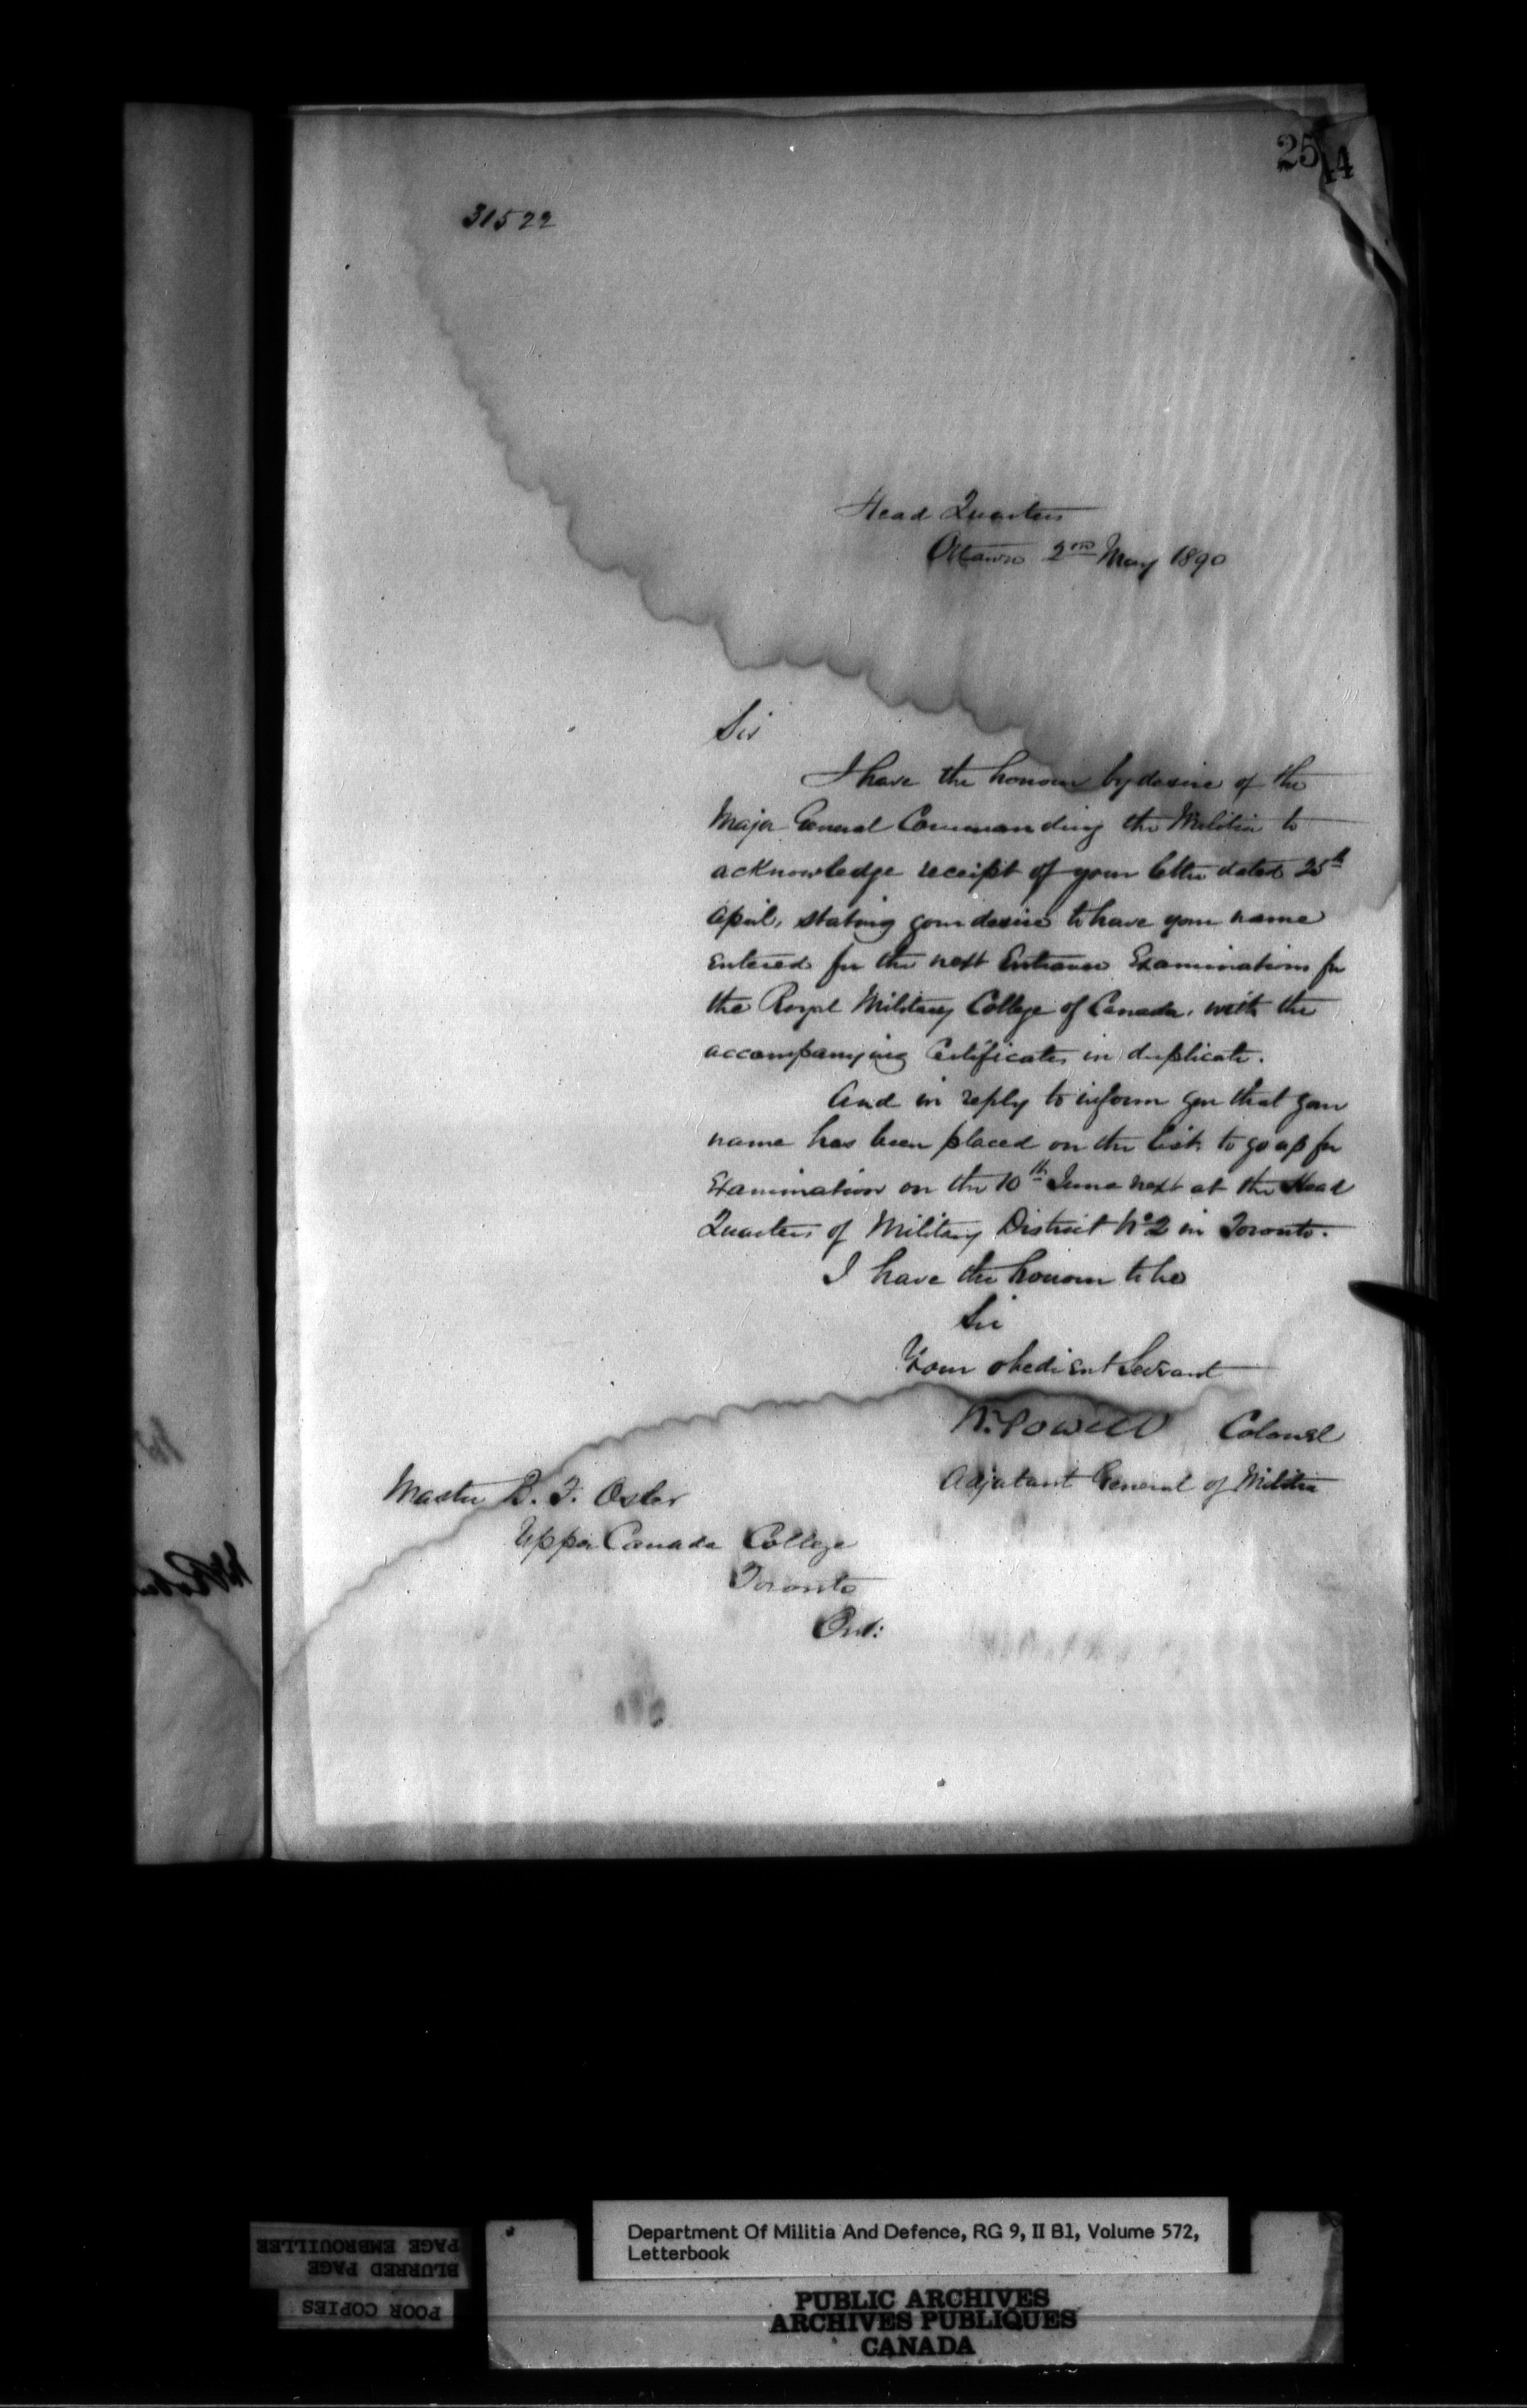 254
31522
Head Quarters
Ottawa 2nd May 1890
Sir
I have the honour by desire of the
Major General Commanding the Militia to
acknowledge receipt of your letter dated 25th
April, stating your desire to have your name
entered for the next Entrance Examinations for
the Royal Military College of Canada, with the
accompanying Certificates in duplicate.
And in reply to inform you that your
name has been placed on the list to go up for
Examination on the 10th June next at the Head
Quarters of Military District No 2 in Toronto.
I have the honour to be
Sir
Your obedient Servant
W. Powell Colonel
Adjutant General of Militia
Master B. F. Osler
Upper Canada College
Toronto
Ont:
PAGE EMBROUILLEE
BLURRED PAGE
POOR COPIES
Department Of Militia And Defence, RG 9, II B1, Volume 572,
Letterbook
PUBLIC ARCHIVES
ARCHIVES PUBLIQUES
CANADA